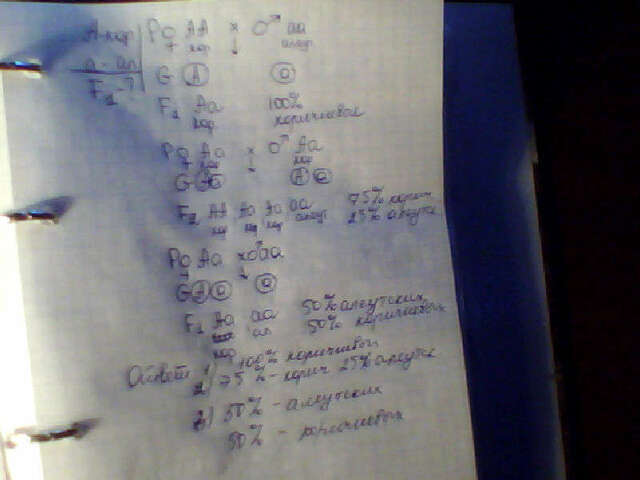 А-кор P ♀ АА × ♂ аа
а-ал кор алеут
F₁-? G Ⓐ ⓐ
F₁ Аа 100%
кор коричневые
P ♀ Аа × ♂ Аа
кор кор
G Ⓐ ⓐ Ⓐ ⓐ
F₂ АА Аа Аа аа 75% корич
кор кор кор алеут 25% алеутс
P ♀ Аа × ♂ аа
G Ⓐ ⓐ ⓐ
F₁ Аа аа 50% алеутских
кор ал 50% коричневых
Ответ: 1) 100% коричневых
2) 75% - корич 25% алеутс
3) 50% - алеутских
50% - коричневых